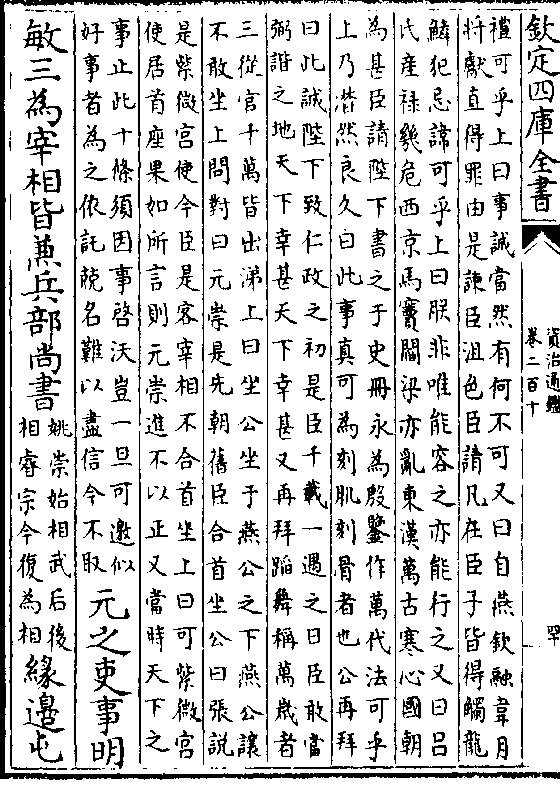 欽定四庫全書
資治通鑑
卷二百十
禮可乎上曰事誠當然有何不可又曰自燕欽融韋月
將獻直得罪由是諫臣沮色臣請凡在臣子皆得觸龍
鱗犯忌諱可乎上曰朕非唯能容之亦能行之又曰呂
氏產祿幾危西京馬竇閻梁亦亂東漢萬古寒心國朝
為甚臣請陛下書之于史冊永為殷鑒作萬代法可乎
上乃潸然良久曰此事真可為刻肌刻骨者也公再拜
曰此誠陛下致仁政之初是臣千載一遇之日臣敢當
弼諧之地天下幸甚天下幸甚又再拜蹈舞稱萬歲者
三從官千萬皆出涕上曰坐公坐于燕公之下燕公讓
不敢坐上問對曰元崇是先朝舊臣合首坐公曰張説
是紫微宮使今臣是客宰相不合首坐上曰可紫微宮
使居首座果如所言則元崇進不以正又當時天下之
事止此十條須因事啓沃豈一旦可邀似
好事者為之依託兢名難以盡信今不取
元之吏事明
敏三為宰相皆兼兵部尚書
姚崇始相武后後
相睿宗今復為相
緣邊屯